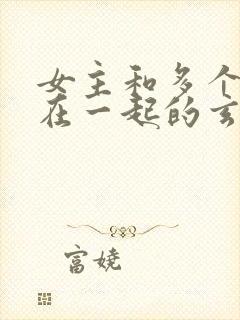 女主和多个
在一起的玄
富娆